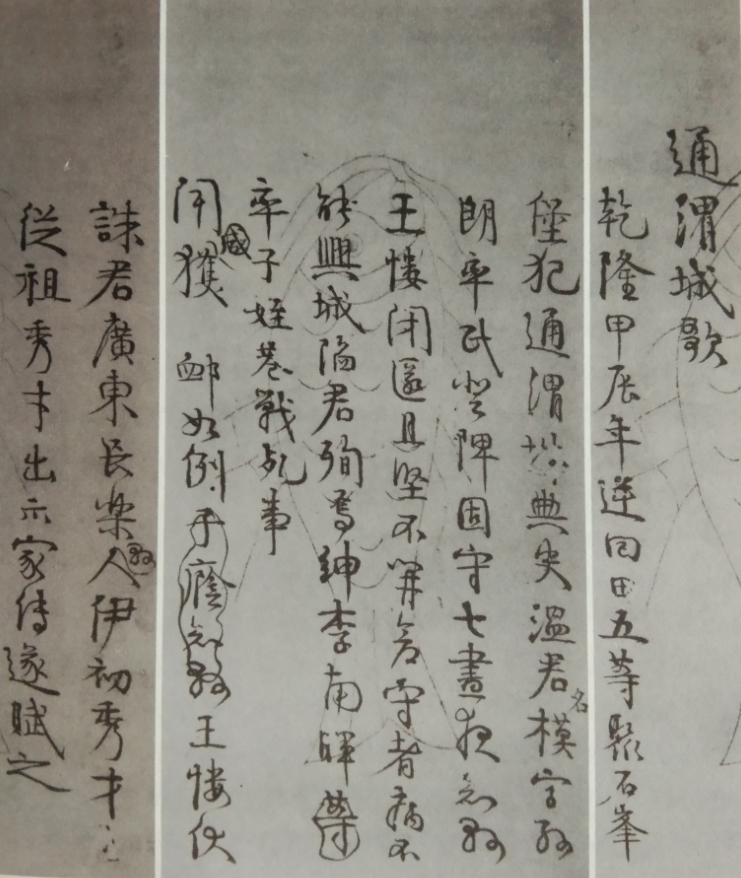 通渭城歌
乾隆甲辰年逆回田五等聚石峯
堡犯通渭典史溫君名模字
朗率民登陴固守七晝夜知縣
王慺閉匿且堅不開倉守者病不
能興城陷君殉焉紳李南暉
率子姪巷戰死事
聞獲卹如例予廕知縣王慺伏
誅君廣東長樂縣人伊初秀才之
從祖秀才出示家傳遂賦之